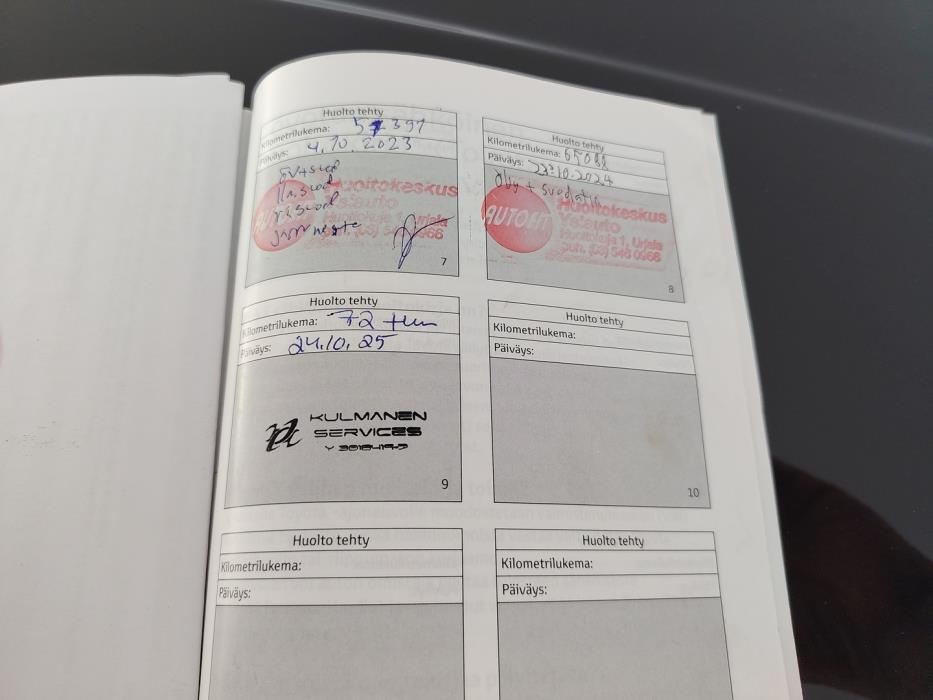 Huolto tehty
Kilometrilukema: 57397
Päiväys: 4.10.2023
öv+suod
Ilm.suod
r.i.suod
jarruneste
AUTOFIT
Huoltokeskus
Vs:auto
Huoltokuja 1, Urjala
puh. (03) 546 0966
7
Huolto tehty
Kilometrilukema: 65088
Päiväys: 23.10.2024
Öljy + suodatin
AUTOFIT
Huoltokeskus
Vs:auto
Huoltokuja 1, Urjala
puh. (03) 546 0966
8
Huolto tehty
Kilometrilukema: 72 tkm
Päiväys: 24.10.25
KULMANEN
SERVICES
9
Huolto tehty
Kilometrilukema:
Päiväys:
10
Huolto tehty
Kilometrilukema:
Päiväys:
Huolto tehty
Kilometrilukema:
Päiväys: